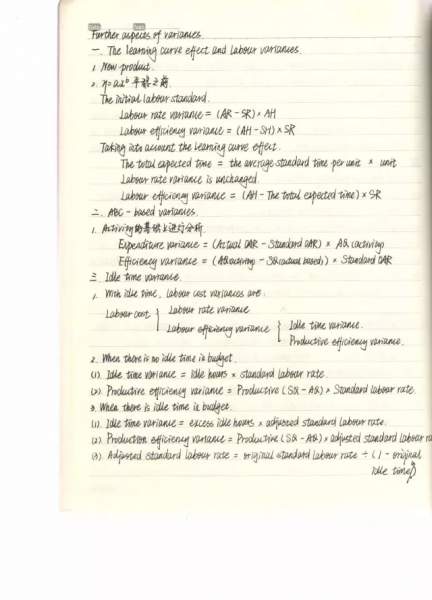 Further aspects of variances
一. The learning curve effect and Labour variances.
1. New product.
2. y=axᵇ 平稳之前
The initial Labour standard.
Labour rate variance = (AR - SR) × AH
Labour efficiency variance = (AH - SH) × SR
Taking into account the learning curve effect.
The total expected time = the average standard time per unit × unit
Labour rate variance is unchanged.
Labour efficiency variance = (AH - The total expected time) × SR
二. ABC - based variances.
1. Activity的基础上进行分析.
Expenditure variance = (Actual OAR - Standard OAR) × AQ (activity)
Efficiency variance = (AQ activity - SQ (actual based)) × Standard OAR
三. Idle time variance.
1. With idle time, labour cost variances are:
Labour rate variance
Labour cost { Idle time variance.
Labour efficiency variance { Productive efficiency variance.
2. When there is no idle time in budget.
(1). Idle time variance = idle hours × standard labour rate.
(2). Productive efficiency variance = Productive (SQ - AQ) × Standard labour rate.
3. When there is idle time in budget.
(1). Idle time variance = excess idle hours × adjusted standard labour rate.
(2) Production efficiency variance = Productive (SQ - AQ) × adjusted standard labour ra
(3). Adjusted standard labour rate = original standard labour rate ÷ (1 - original
idle time)